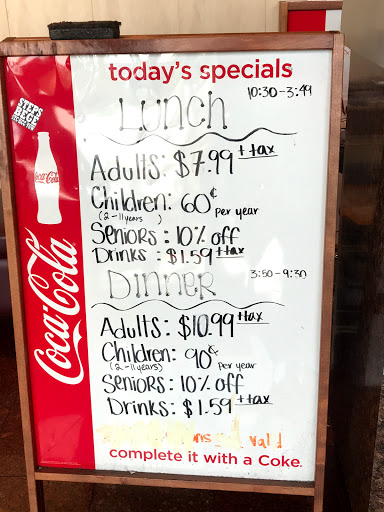 today's specials
LUNCH 10:30-3:49
Adults: $7.99 +tax
Children: 60¢ per year
(2-11years)
Seniors: 10% off
Drinks: $1.59 +tax
DINNER 3:50-9:30
Adults: $10.99 +tax
Children: 90¢ per year
(2-11years)
Seniors: 10% off
Drinks: $1.59 +tax
complete it with a Coke.
Coca-Cola
Coca-Cola